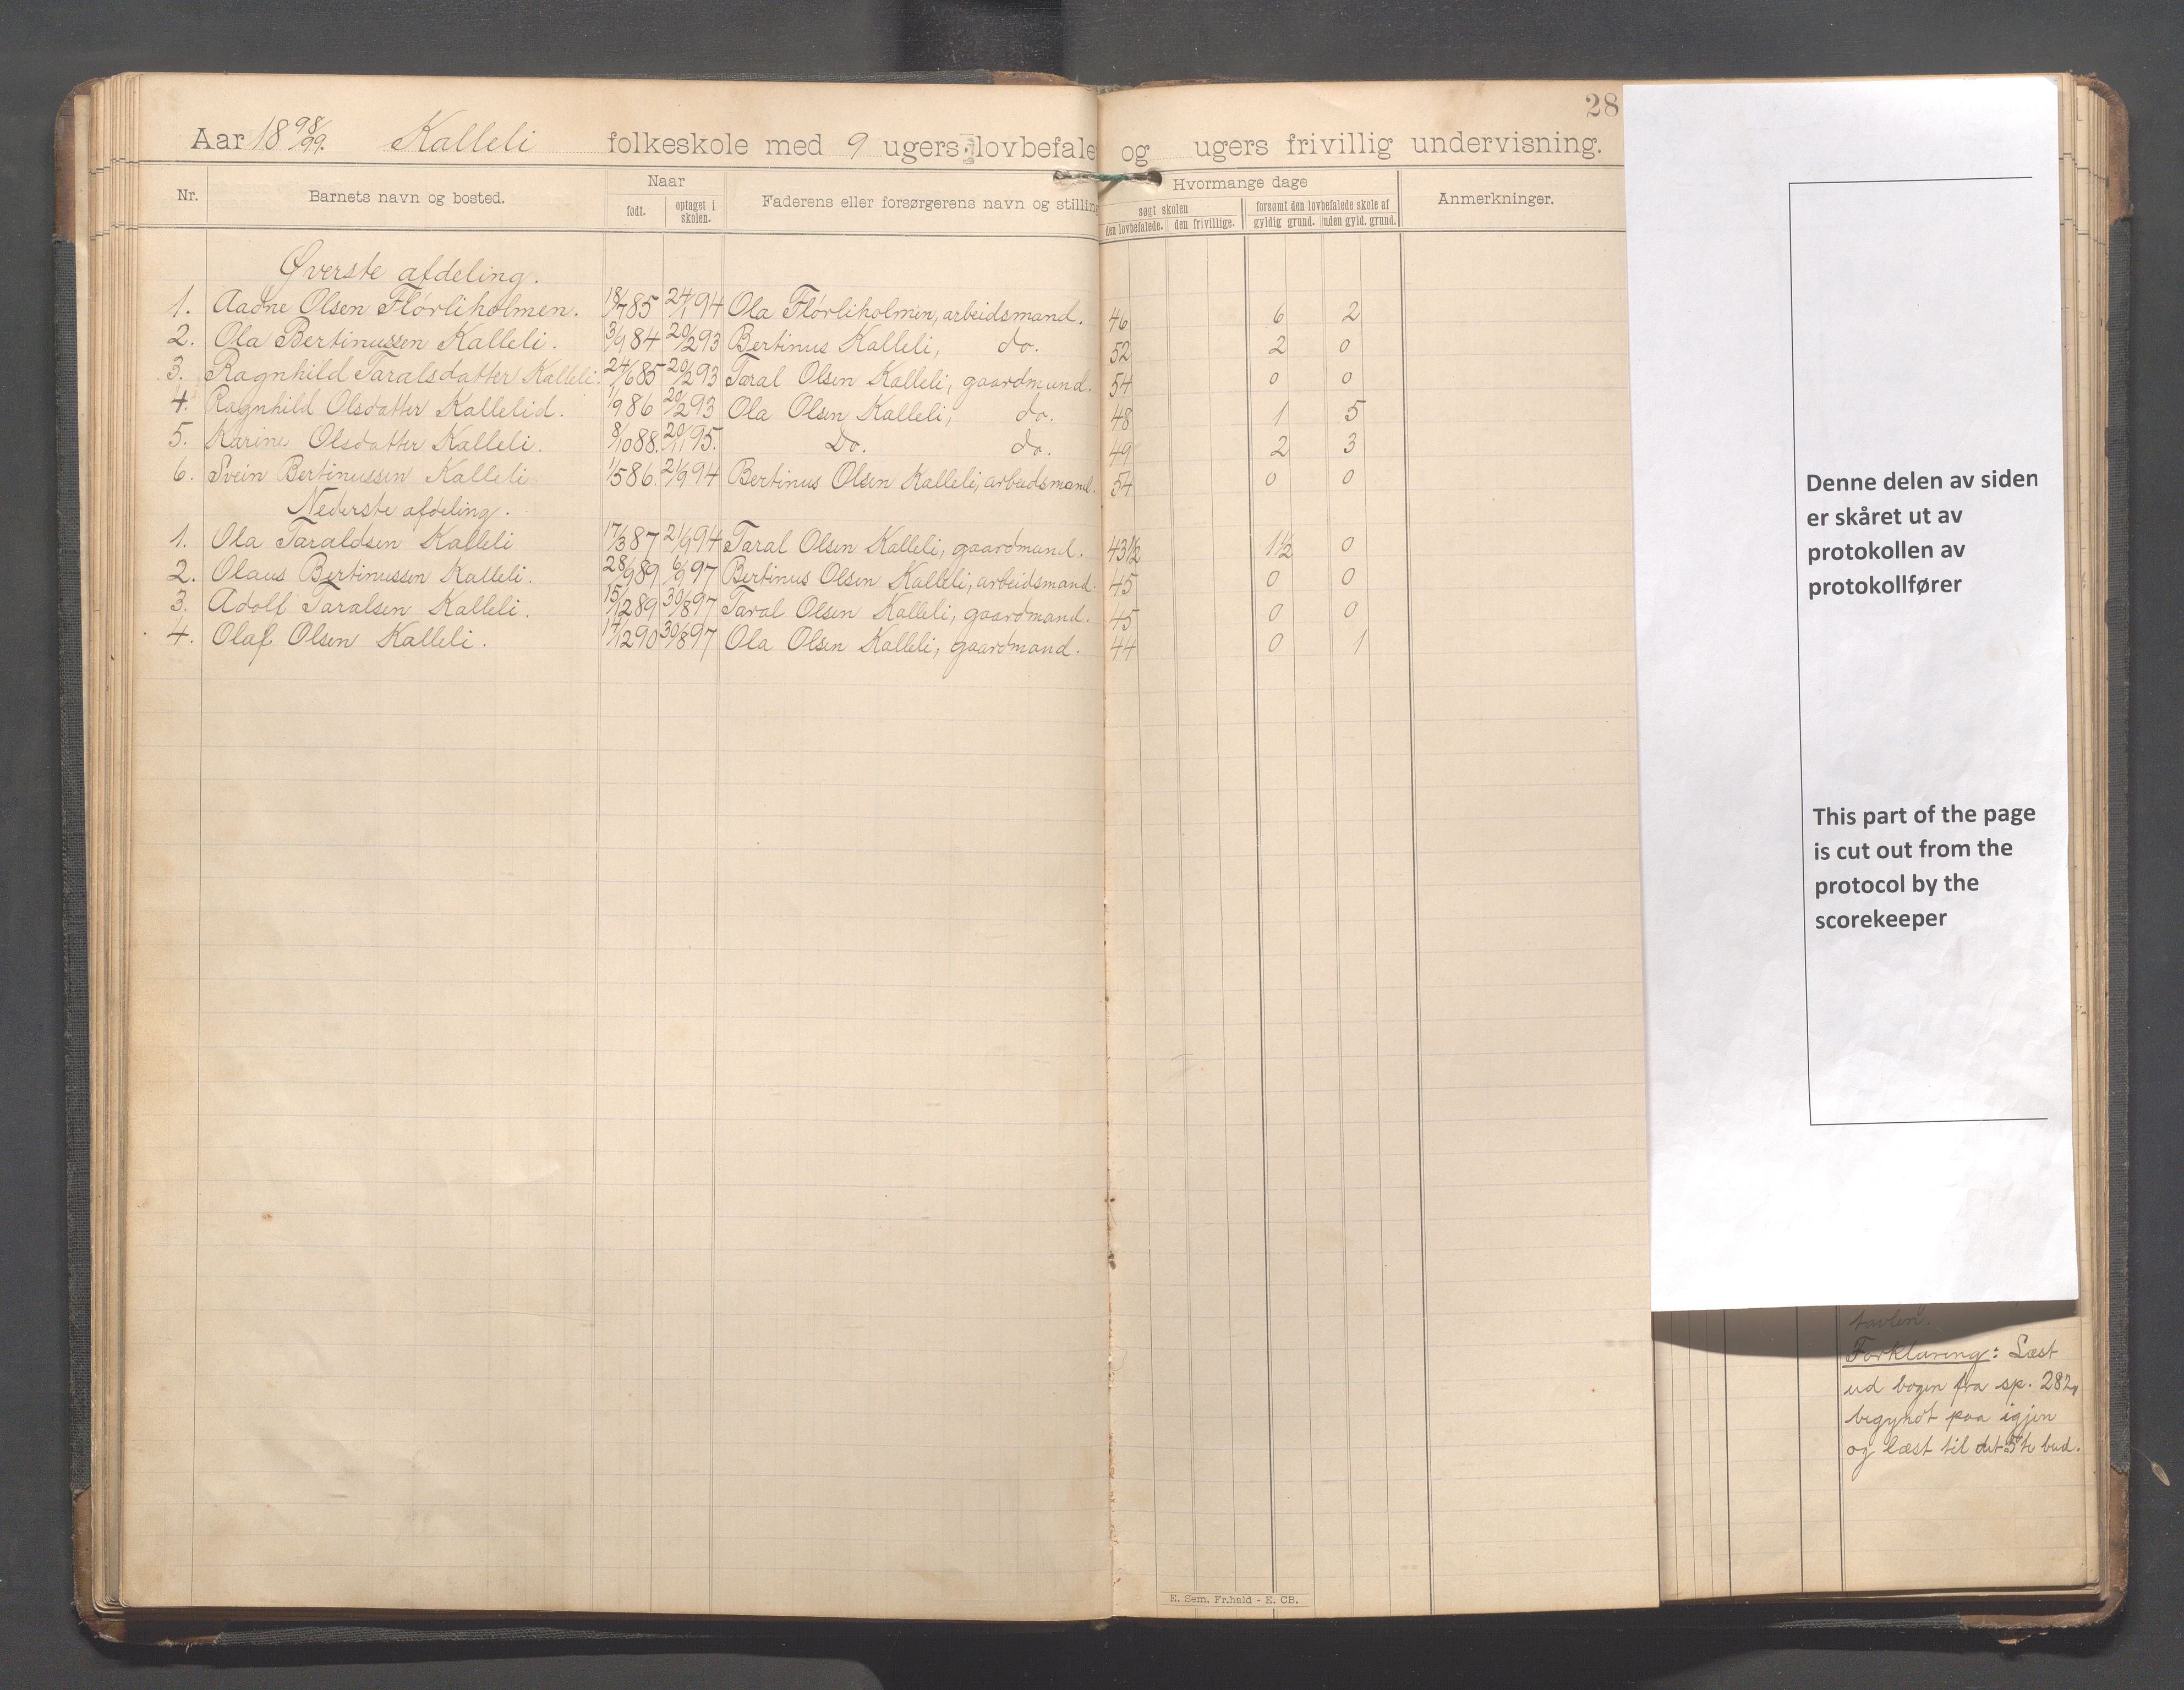 28
Aar 18 98/99. Kalleli folkeskole med 9 ugers lovbefale og ugers frivillig undervisning.
Nr. Barnets navn og bosted. Naar Faderens eller forsørgerens navn og stilling Hvormange dage Anmerkninger.
født. optaget i skolen. søgt skolen forsømt den lovbefalede skole af
den lovbefalede. den frivillige. gyldig grund. uden gyld. grund.
Øverste afdeling.
1. Aadne Olsen Flørliholmen. 18/7 85 24/1 94 Ola Flørliholmen, arbeidsmand. 46 6 2
2. Ola Bertinussen Kalleli. 3/9 84 20/2 93 Bertinus Kalleli, do. 52 2 0
3. Ragnhild Taralsdatter Kalleli. 24/6 85 20/2 93 Taral Olsen Kalleli, gaardmand. 54 0 0
4. Ragnhild Olsdatter Kallelid. 1/9 86 20/2 93 Ola Olsen Kalleli, do. 48 1 5
5. Karine Olsdatter Kalleli. 8/10 88. 20/11 95. Do. do. 49 2 3
6. Svein Bertinussen Kalleli 1/5 86. 21/9 94 Bertinus Olsen Kalleli, arbeidsmand. 54 0 0
Nederste afdeling.
1. Ola Taraldsen Kalleli 17/3 87 21/9 94 Taral Olsen Kalleli, gaardmand. 43 1/2 1 1/2 0
2. Olaus Bertinussen Kalleli. 28/9 89 6/9 97 Bertinus Olsen Kalleli, arbeidsmand. 45 0 0
3. Adolf Taralsen Kalleli. 15/12 89 30/8 97 Taral Olsen Kalleli, gaardmand. 45 0 0
4. Olaf Olsen Kalleli. 14/12 90 30/8 97 Ola Olsen Kalleli, gaardmand. 44 0 1
E. Sem. Fr.hald - E. CB.
Denne delen av siden
er skåret ut av
protokollen av
protokollfører
This part of the page
is cut out from the
protocol by the
scorekeeper
tavlen.
Forklaring: Læst
ud bogen fra sp. 282,
begyndt paa igjen
og læst til det 5te bud.